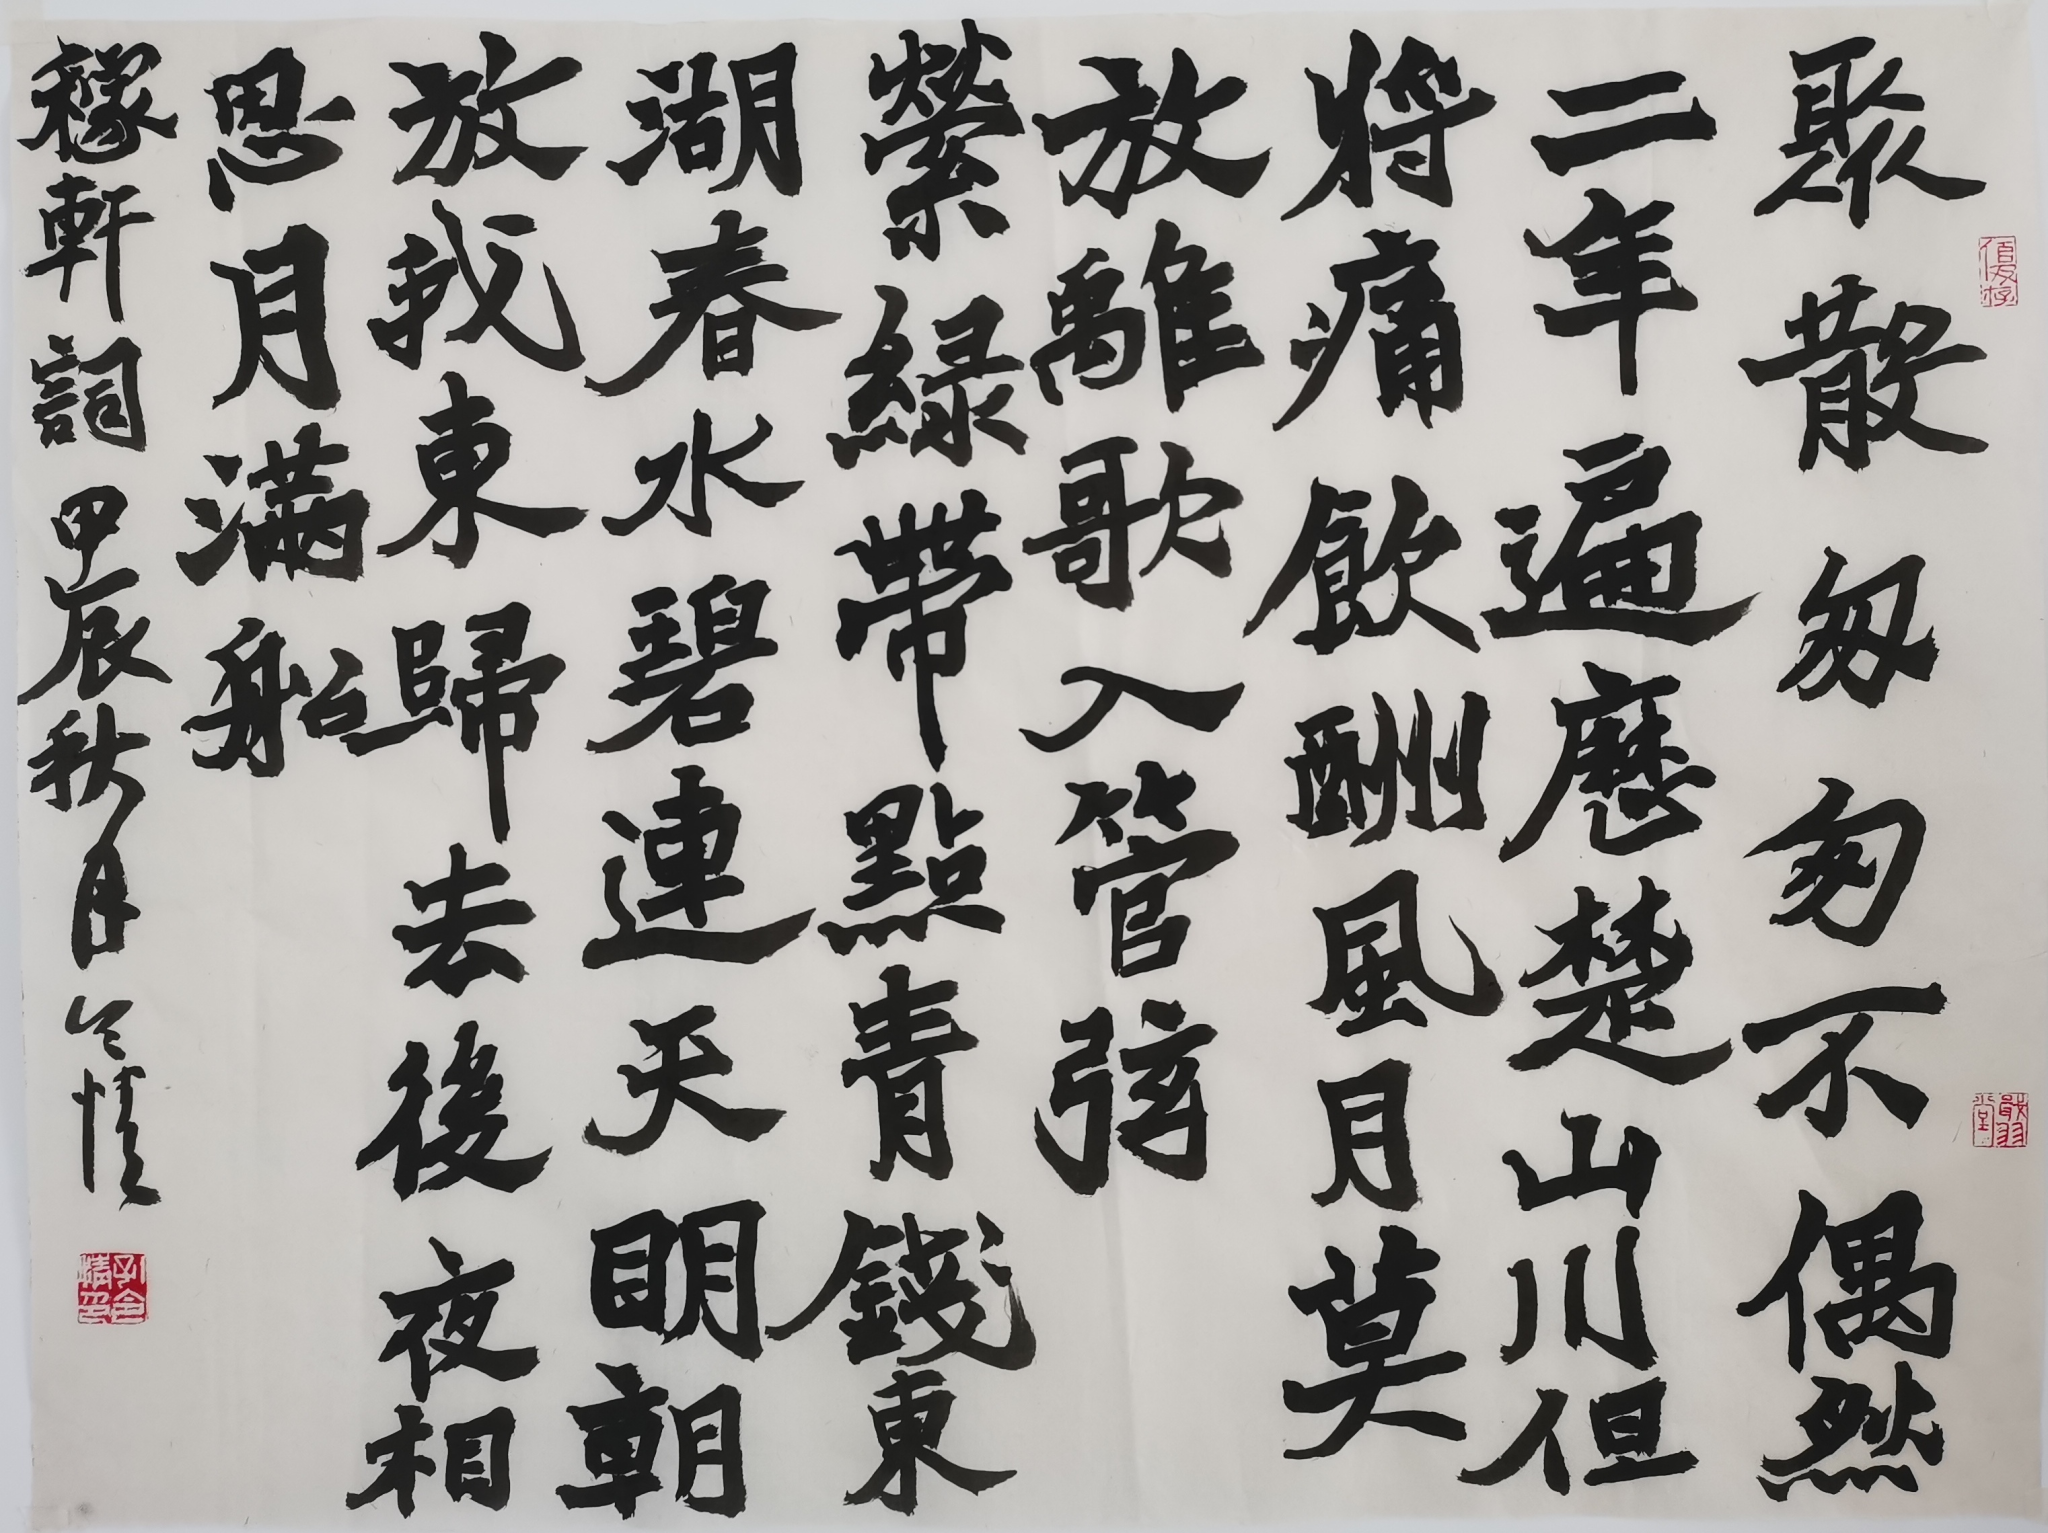 聚散匆匆不偶然
二年遍歷楚山川但
將痛飲酬風月莫
放離歌入管弦
縈綠帶點青錢東
湖春水碧連天明朝
放我東歸去後夜相
思月滿船
稼軒詞甲辰秋月令情